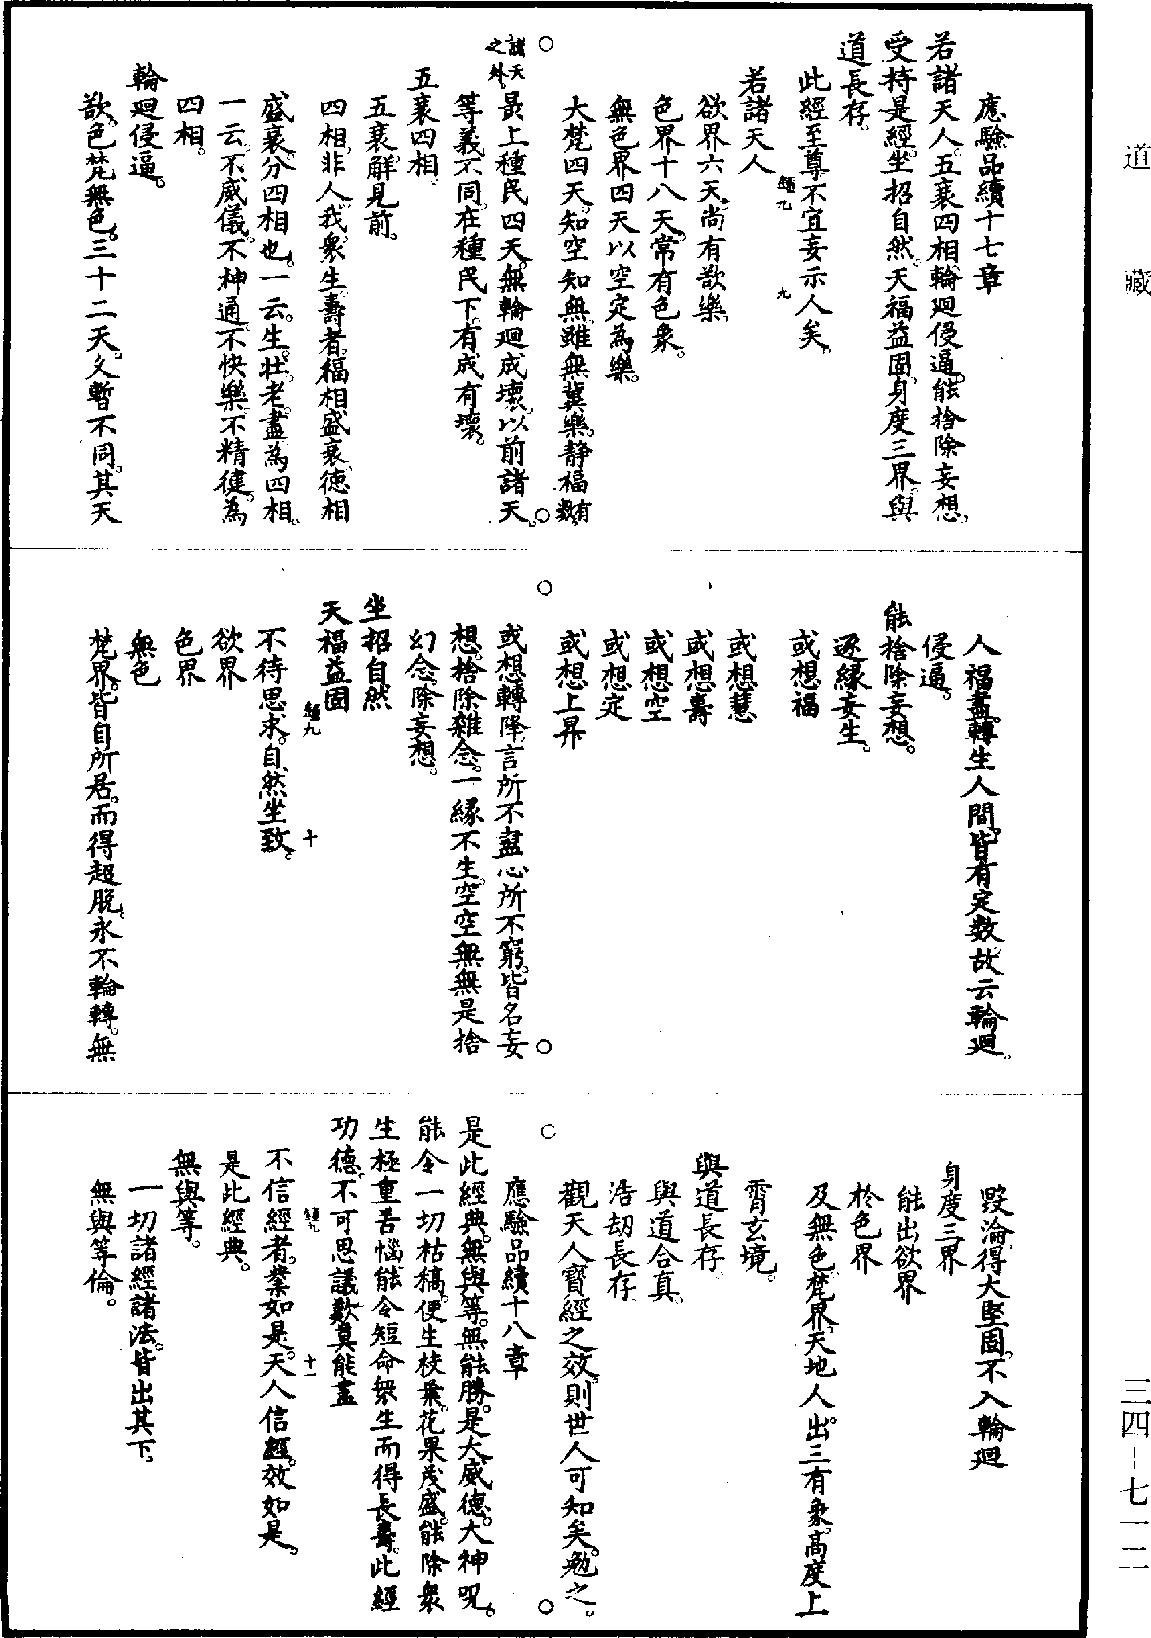 道藏
應驗品續十七章
若諸天人。五衰四相。輪廻侵逼。能捨除妄想。
受持是經。坐招自然。天福益固。身度三界。與
道長存。
此經至尊不宜妄示人矣。
經九
九
若諸天人
欲界六天。尚有歡樂。
色界十八天。常有色衆。
無色界四天以空定為樂。
大梵四天。知空知無。雖無冀樂。静福有數
諸天之外。
最上種民四天。無輪廻成壞。以前諸天。
等義不同。在種民下。有成有壞。
五衰四相
五衰。解見前。
四相。非人。我。衆生。壽者。福相盛衰。德相
盛衰。分四相也。一云。生。壯。老。盡為四相。
一云。不威儀。不神通。不快樂。不精健。為
四相。
輪廻侵逼。
歆。色。梵。無色。三十二天。久暫不同。其天
人福盡。轉生人間。皆有定數。故云輪廻。
侵逼。
能捨除妄想。
逐緣妄生。
或想福
或想慧
或想壽
或想空
或想定
或想上昇
或想轉降。言所不盡。心所不窮。皆名妄
想。捨除雜念。一緣不生。空空無無。是捨
幻念。除妄想。
坐招自然
天福益固
經九
十
不待思求。自然坐致。
欲界
色界
無色
梵界。皆自所居。而得超脫。永不輪轉。無
毀淪。得大堅固。不入輪廻
身度三界
能出欲界
於色界
及無色。梵界。天地人。出三有衆。高度上
霄玄境。
與道長存
與道合真。
浩劫長存
觀天人寶經之效。則世人可知矣。勉之。
應驗品續十八章
是此經典。無與等。無能勝。是大威德。大神呪。
能令一切枯槁。便生枝葉。花果茂盛。能除衆
生極重苦惱。能令短命衆生而得長壽。此經
功德。不可思議。歎莫能盡
經九
十一
不信經者。業如是。天人信經。效如是。
是此經典。
無與等。
一切諸經諸法。皆出其下。
無與等倫。
三四-七一二